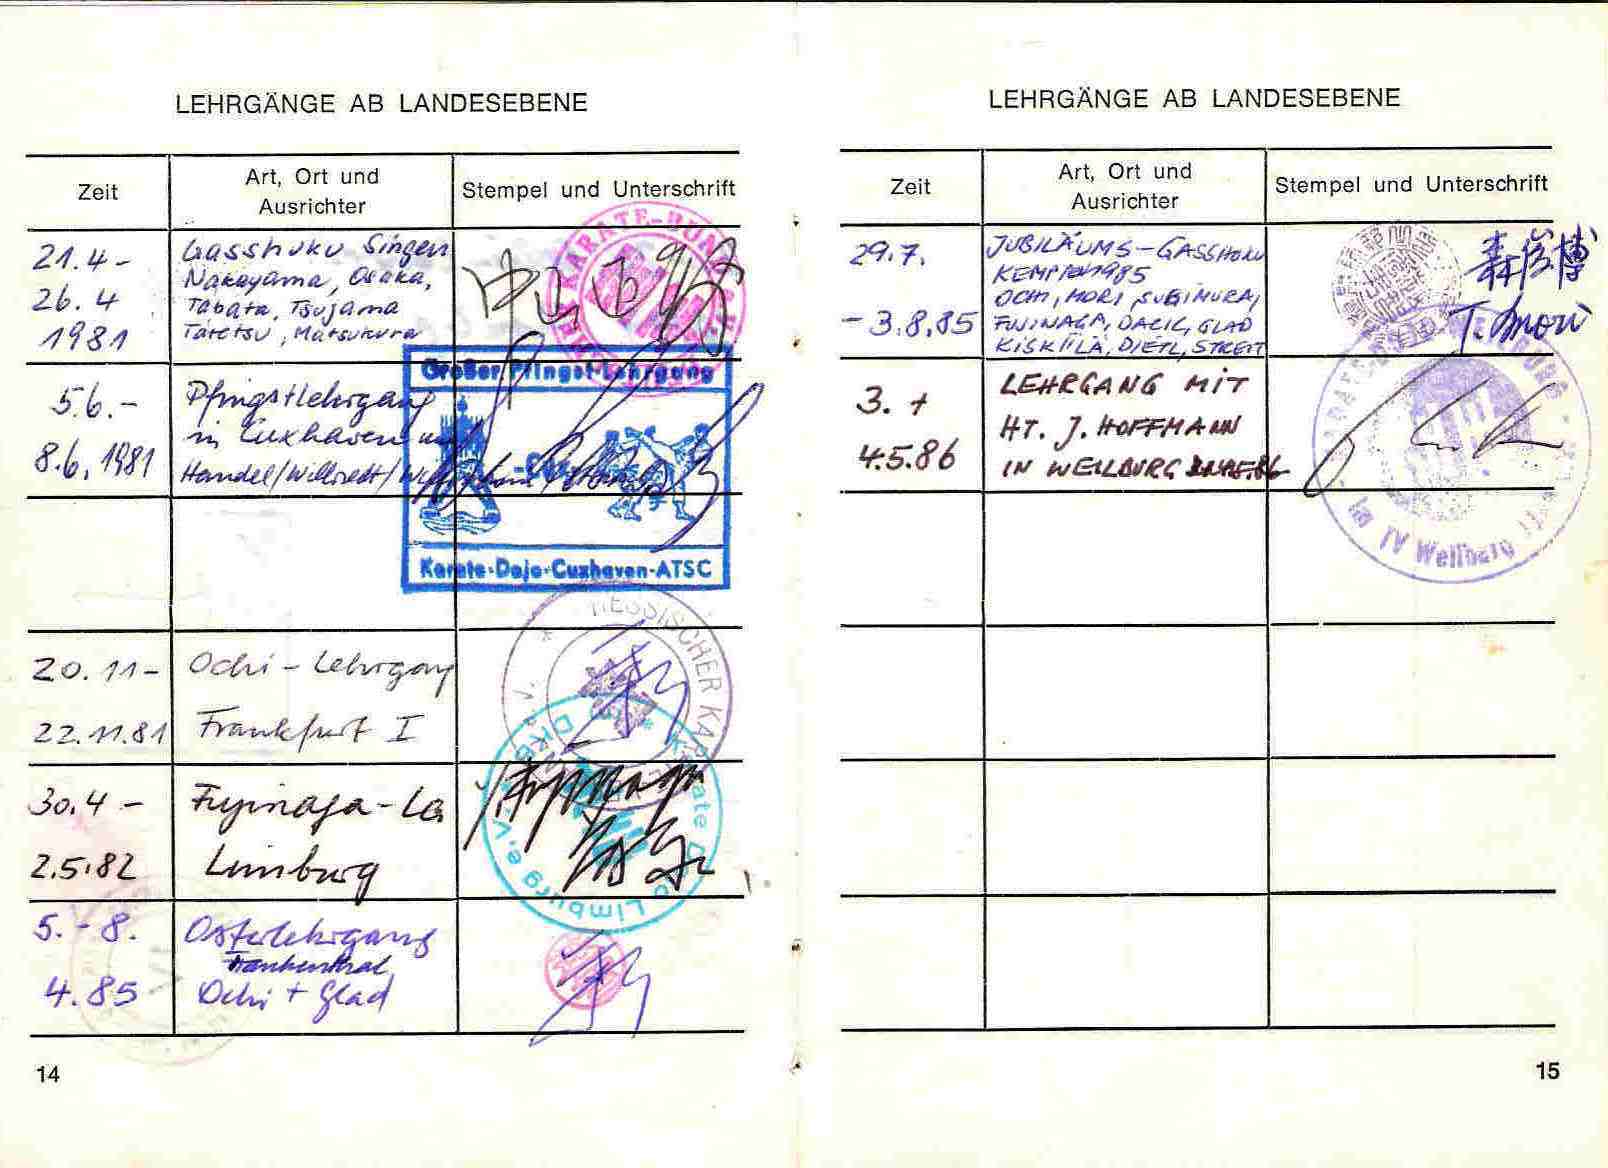 LEHRGÄNGE AB LANDESEBENE
Zeit
Art, Ort und
Ausrichter
Stempel und Unterschrift
21.4 -
26.4
1981
Gasshuku Singen
Nakayama, Osaka,
Tabata, Tsujama
Tatetsu, Matsukura
KARATE-BUN
5.6.-
8.6.1981
Pfingstlehrgang
in Cuxhaven
Handel/Willrodt/
Großer Pfingst-Lehrgang
Karate-Dojo-Cuxhaven-ATSC
20.11-
22.11.81
Ochi - Lehrgang
Frankfurt I
HESSISCHER KARATE
30.4 -
2.5.82
Fujinaga - Lg
Limburg
Karate Dojo Limburg e.V. DKB
5. - 8.
4.85
Osterlehrgang
Frankenthal
Ochi + Glad
14
LEHRGÄNGE AB LANDESEBENE
Zeit
Art, Ort und
Ausrichter
Stempel und Unterschrift
29.7.
- 3.8.85
JUBILÄUMS-GASSHUKU
KEMPTEN 1985
OCHI, MORI, SUGIMURA,
FUJINAGA, DACIC, GLAD
KISKIILÄ, DIETL, STREIT
森俊博
T. Mori
3. +
4.5.86
LEHRGANG MIT
HT. J. HOFFMANN
IN WEILBURG
im TV Weilburg
15